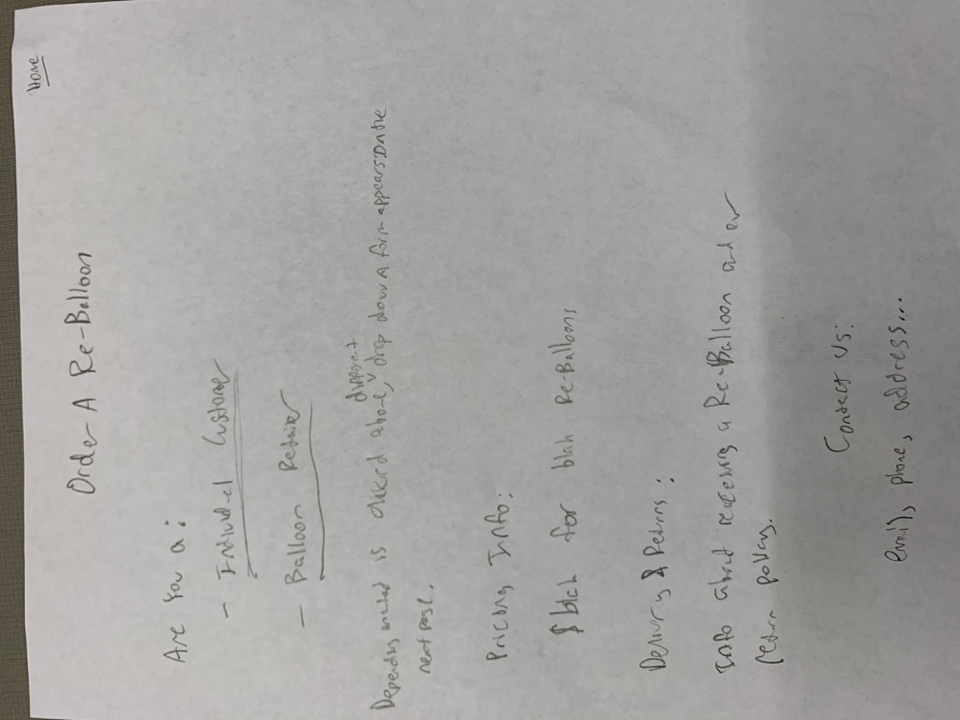 Home
Order A Re-Balloon
Are You a:
- Individual Customer
- Balloon Retailer
different
Depending what is clicked above, drop down a form appears on the
next page.
Pricing Info:
$ blah for blah Re-Balloons
Delivery & Returns:
Info about receiving a Re-Balloon and our
return policy.
Contact Us:
email, phone, address...